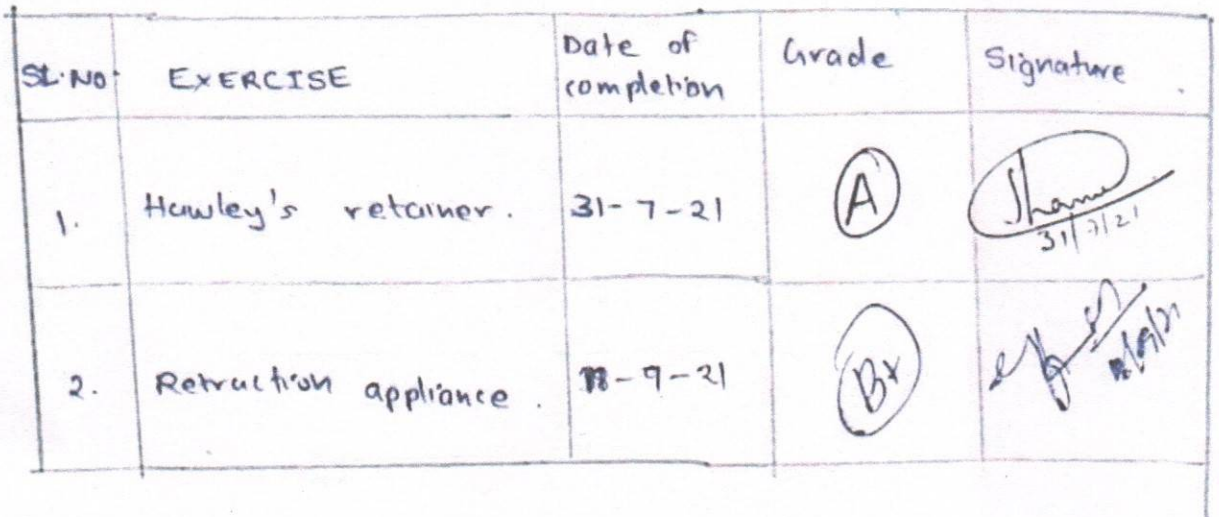 SL.NO. EXERCISE Date of completion Grade Signature
1. Hawley's retainer. 31-7-21 A
31/7/21
2. Retraction appliance. -9-21 B+